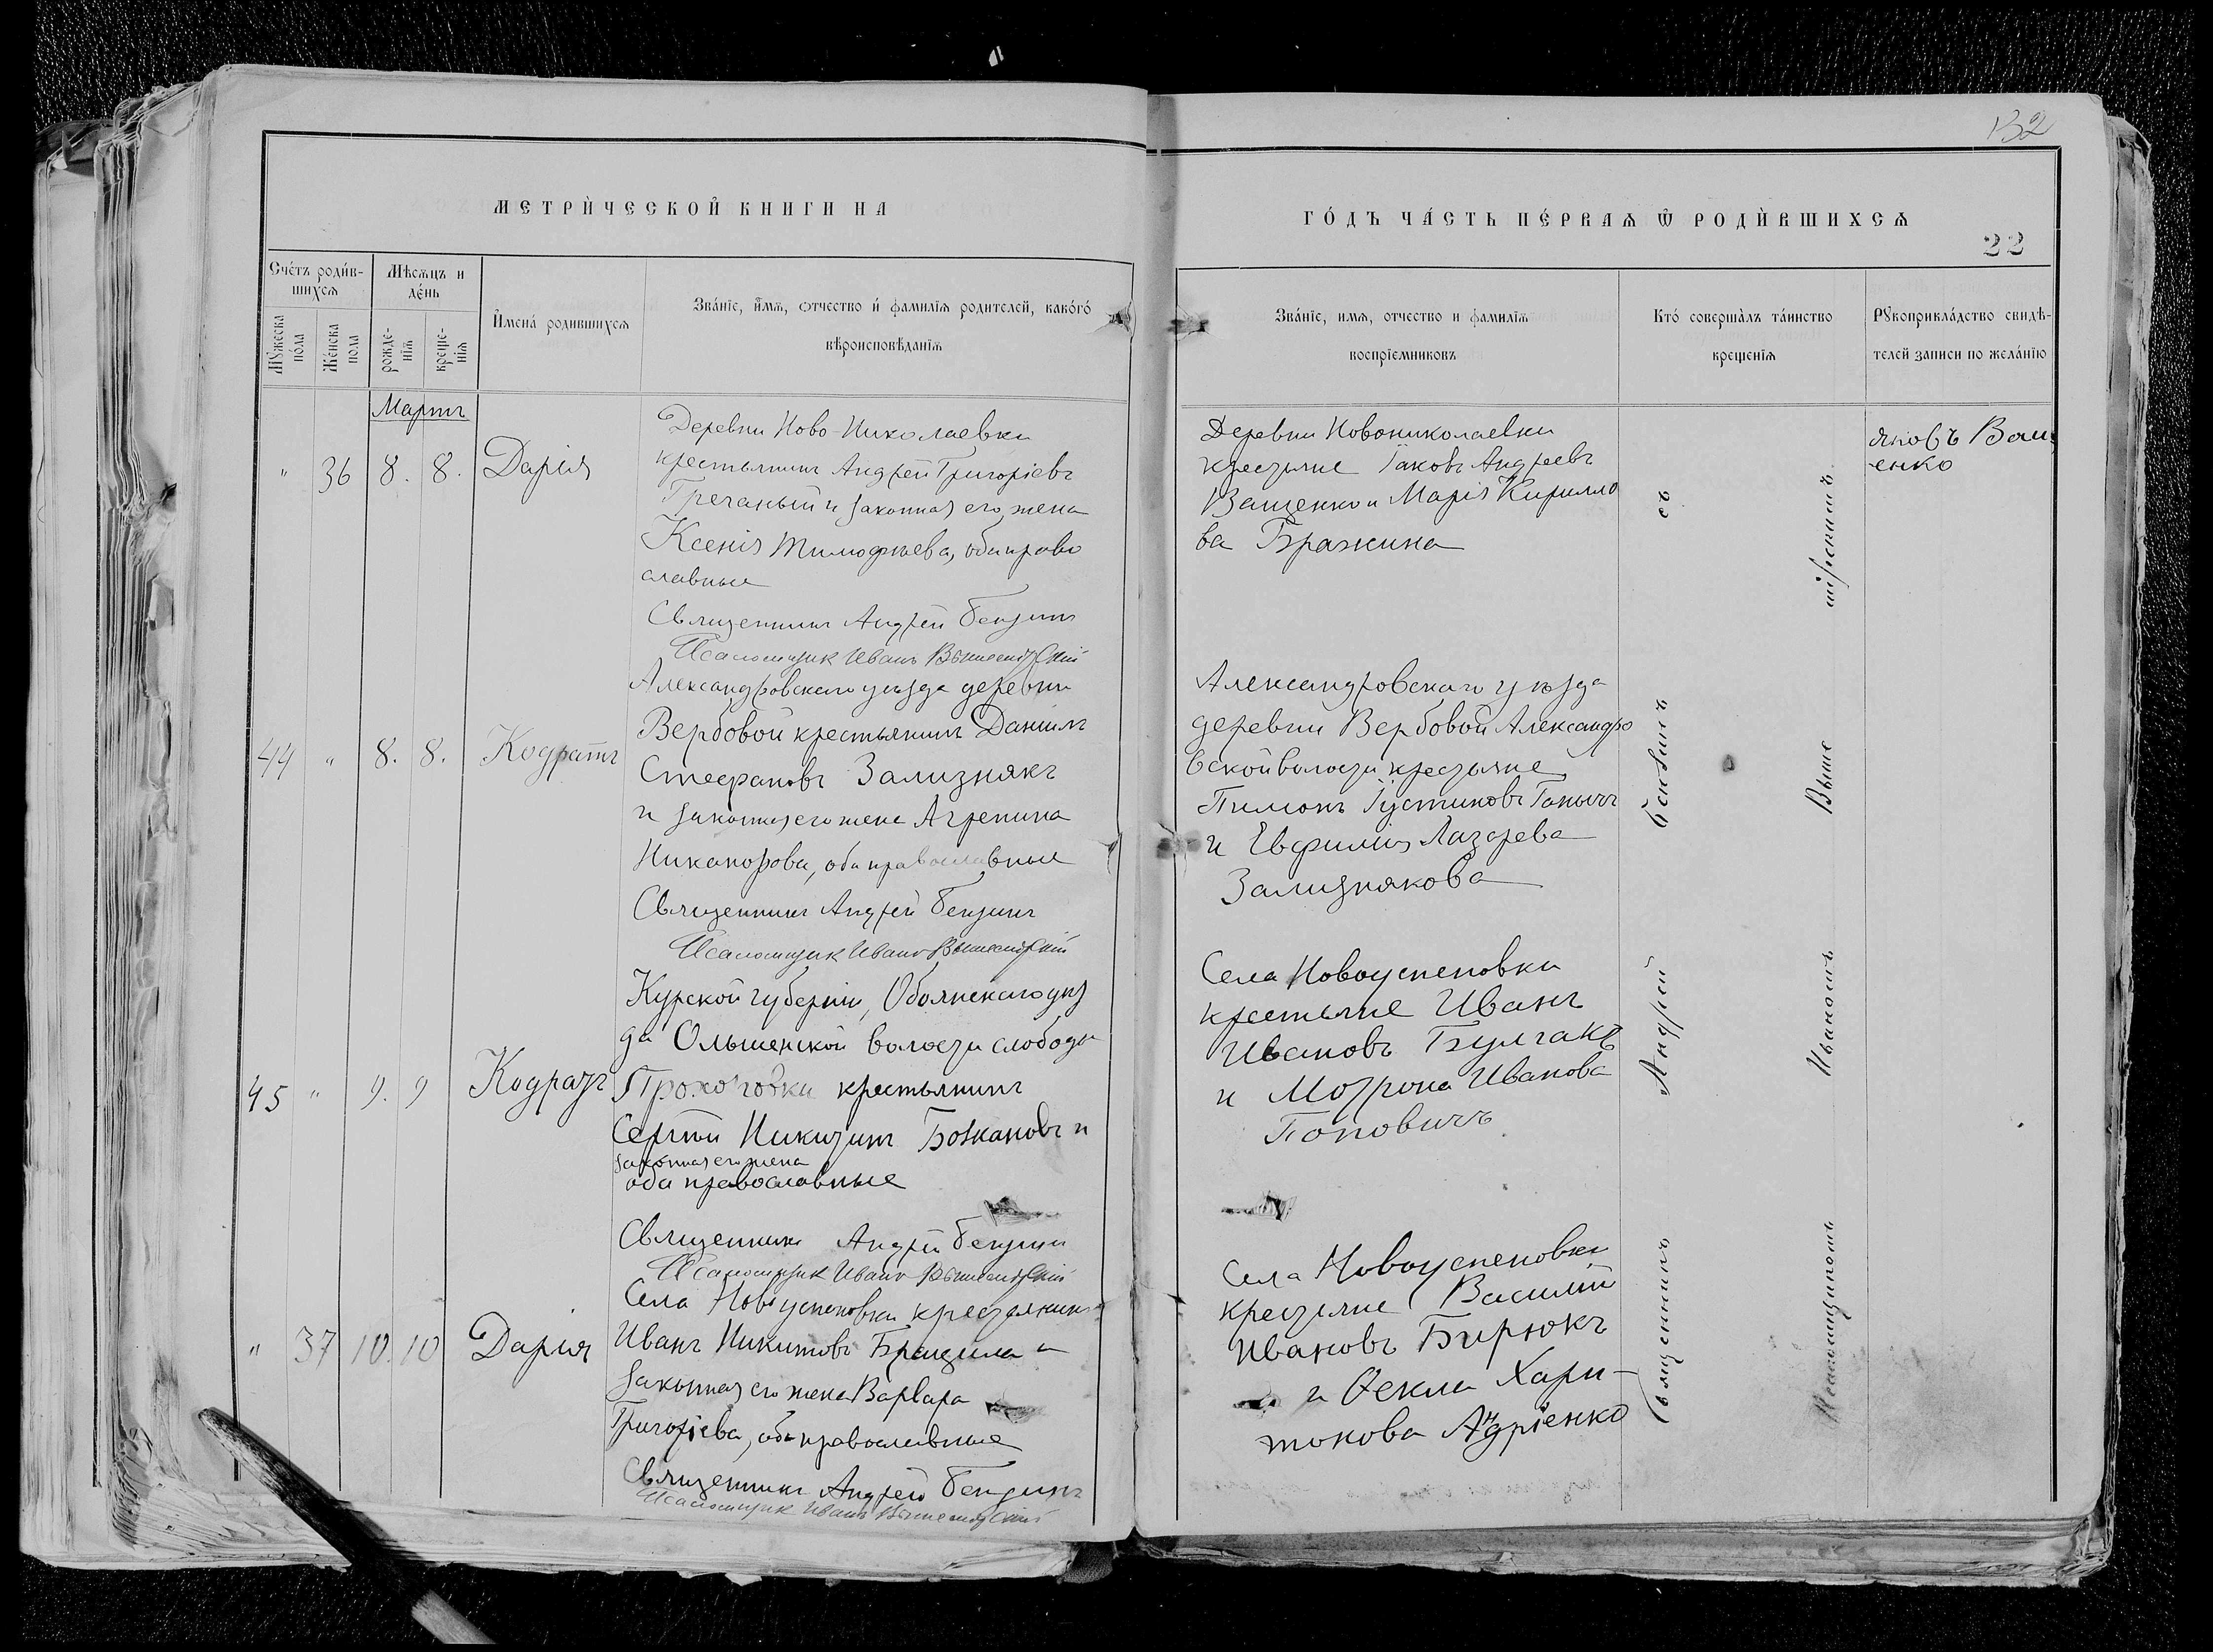 132
МЕТРИЧЕСКОЙ КНИГИ НА
ГОДЪ ЧАСТЬ ПЕРВАЯ Ѿ РОДИВШИХСЯ
22
Счетъ родив-
шихся
Мѣсяцъ и
день
Мужеска
пола
Женска
пола
рожде-
нія
креще-
нія
Имена родившихся
Званіе, имя, отчество и фамилія родителей, какого
вѣроисповѣданія
Званіе, имя, отчество и фамилія
воспріемниковъ
Кто совершалъ таинство
крещенія
Рукоприкладство свидѣ-
телей записи по желанію
Мартъ
" 36 8. 8. Дарія
Деревни Ново-Николаевки
крестьянинъ Андрей Григоріевъ
Гречаный и законная его жена
Ксенія Тимофѣева, оба право
славные
Священникъ Андрей Бендинъ
Псаломщик Иванъ
Деревни Новониколаевки
крестьяне Іаковъ Андреевъ
Ващенко и Марія Кирилло
ва Бражкина
Яковъ Ващ
енко
44 " 8. 8. Кодратъ
Александровскаго уѣзда деревни
Вербовой крестьянинъ Даніилъ
Стефановъ Зализнякъ
и законная его жена Агрепина
Никанорова, оба православные
Священникъ Андрей Бендинъ
Псаломщик Иванъ
Александровскаго уѣзда
деревни Вербовой Александро
вской волости крестьяне
Пимонъ Іустиновъ
и Евфимія Лазарева
Зализнякова
45 " 9. 9 Кодратъ
Курской губерніи, Обоянскаго уѣз
да Ольшенской волости слободы
крестьянинъ
Сергѣй Никитинъ Божановъ и
законная его жена
оба православные
Священникъ Андрей Бендинъ
Псаломщик Иванъ
Села Новоуспеновки
крестьяне Иванъ
Ивановъ Булгакъ
и Мотрона Иванова
Поповичъ
" 37 10. 10 Дарія
Села Новоуспеновки крестьянинъ
Иванъ Никитовъ и
законная его жена Варвара
Григоріева, оба православные
Священникъ Андрей Бендинъ
Псаломщик Иванъ
Села Новоуспеновки
крестьяне Василій
Ивановъ Бирюкъ
и Ѳекла Хари-
тонова Андріенко
Священникъ Андрей Бендинъ съ
Псаломщикомъ Иваномъ